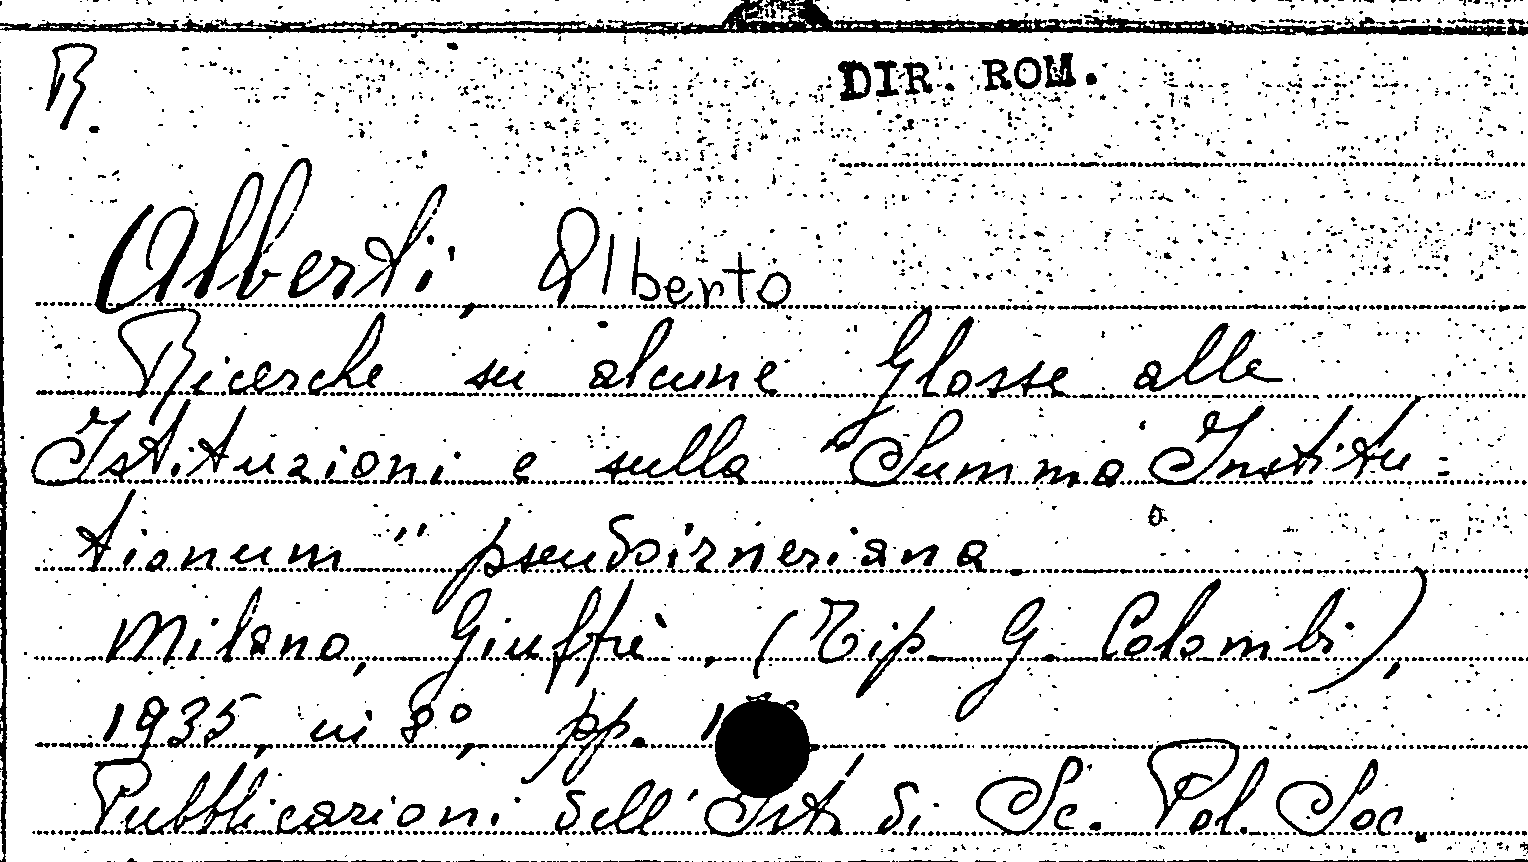 B.
DIR. ROM.
Alberti, Alberto
Ricerche su alcune Glosse alle
Istituzioni e sulla "Summa Institu=
tionum" pseudoirneriana.
Milano, Giuffrè, (Tip. G. Colombi),
1935, in 8°, pp.
Pubblicazioni dell'Ist. di Sc. Pol. Soc.